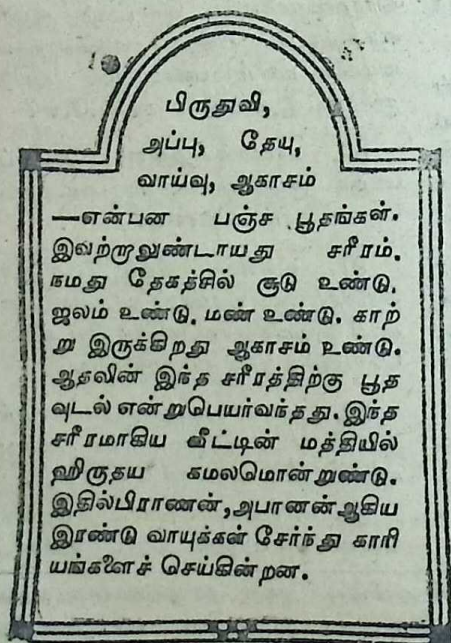 பிருதுவி,
அப்பு, தேயு,
வாய்வு, ஆகாசம்
—என்பன பஞ்ச பூதங்கள்.
இவற்றாலுண்டாயது சரீரம்.
நமது தேகத்சில் சூடு உண்டு.
ஜலம் உண்டு. மண் உண்டு. காற்
று இருக்கிறது ஆகாசம் உண்டு.
ஆதலின் இந்த சரீரத்திற்கு பூத
வுடல் என்றுபெயர்வந்தது. இந்த
சரீரமாகிய வீட்டின் மத்தியில்
ஹிருதய கமலமொன்றுண்டு.
இதில்பிராணன்,அபானன்ஆகிய
இரண்டு வாயுக்கள் சேர்ந்து காரி
யங்களைச் செய்கின்றன.